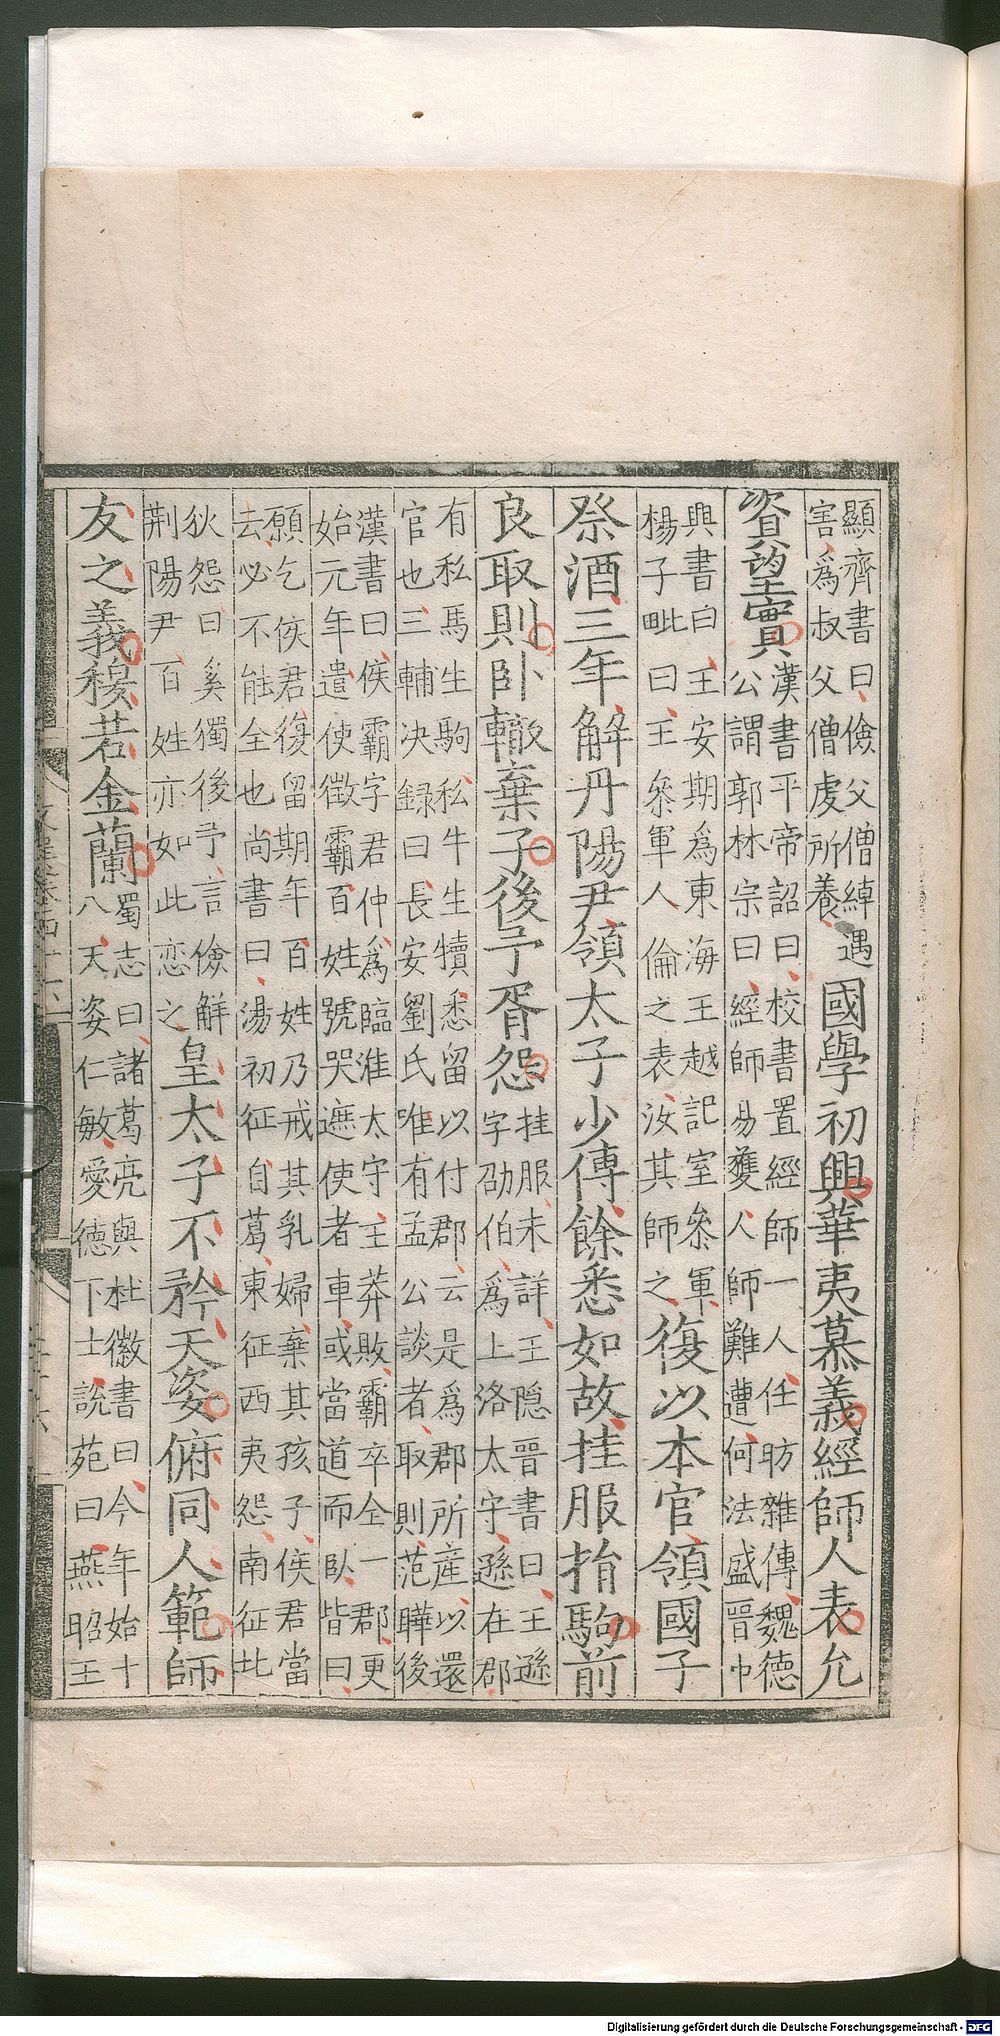 顯齊書曰儉父僧綽遇害爲叔父僧虔所養國學初興華夷慕義經師人表允
資望實漢書平帝詔曰校書置經師一人任昉雜傳魏德公謂郭林宗曰經師易獲人師難遭何法盛晉中
興書曰王安期爲東海王越記室參軍楊子毗曰王參軍人倫之表汝其師之復以本官領國子
祭酒三年解丹陽尹領太子少傅餘悉如故挂服捐駒前
良取則卧轍棄子後予胥怨挂服未詳王隱晉書曰王遜字劭伯爲上洛太守遜在郡
有私馬生駒私牛生犢悉留以付郡云是爲郡所產以還官也三輔决録曰長安劉氏唯有孟公談者取則范曄後
漢書曰侯霸字君仲爲臨淮太守王莽敗霸卒全一郡更始元年遣使徵霸百姓號哭遮使者車或當道而臥皆曰
願乞侯君復留期年百姓乃戒其乳婦棄其孩子侯君當去必不能全也尚書曰湯初征自葛東征西夷怨南征北
狄怨曰奚獨後予言儉解荆陽尹百姓亦如此恋之皇太子不矜天姿俯同人範師
友之義穆若金蘭蜀志曰諸葛亮與杜微書曰今年始十八天姿仁敏愛德下士說苑曰燕昭王
Digitalisierung gefördert durch die Deutsche Forschungsgemeinschaft - DFG